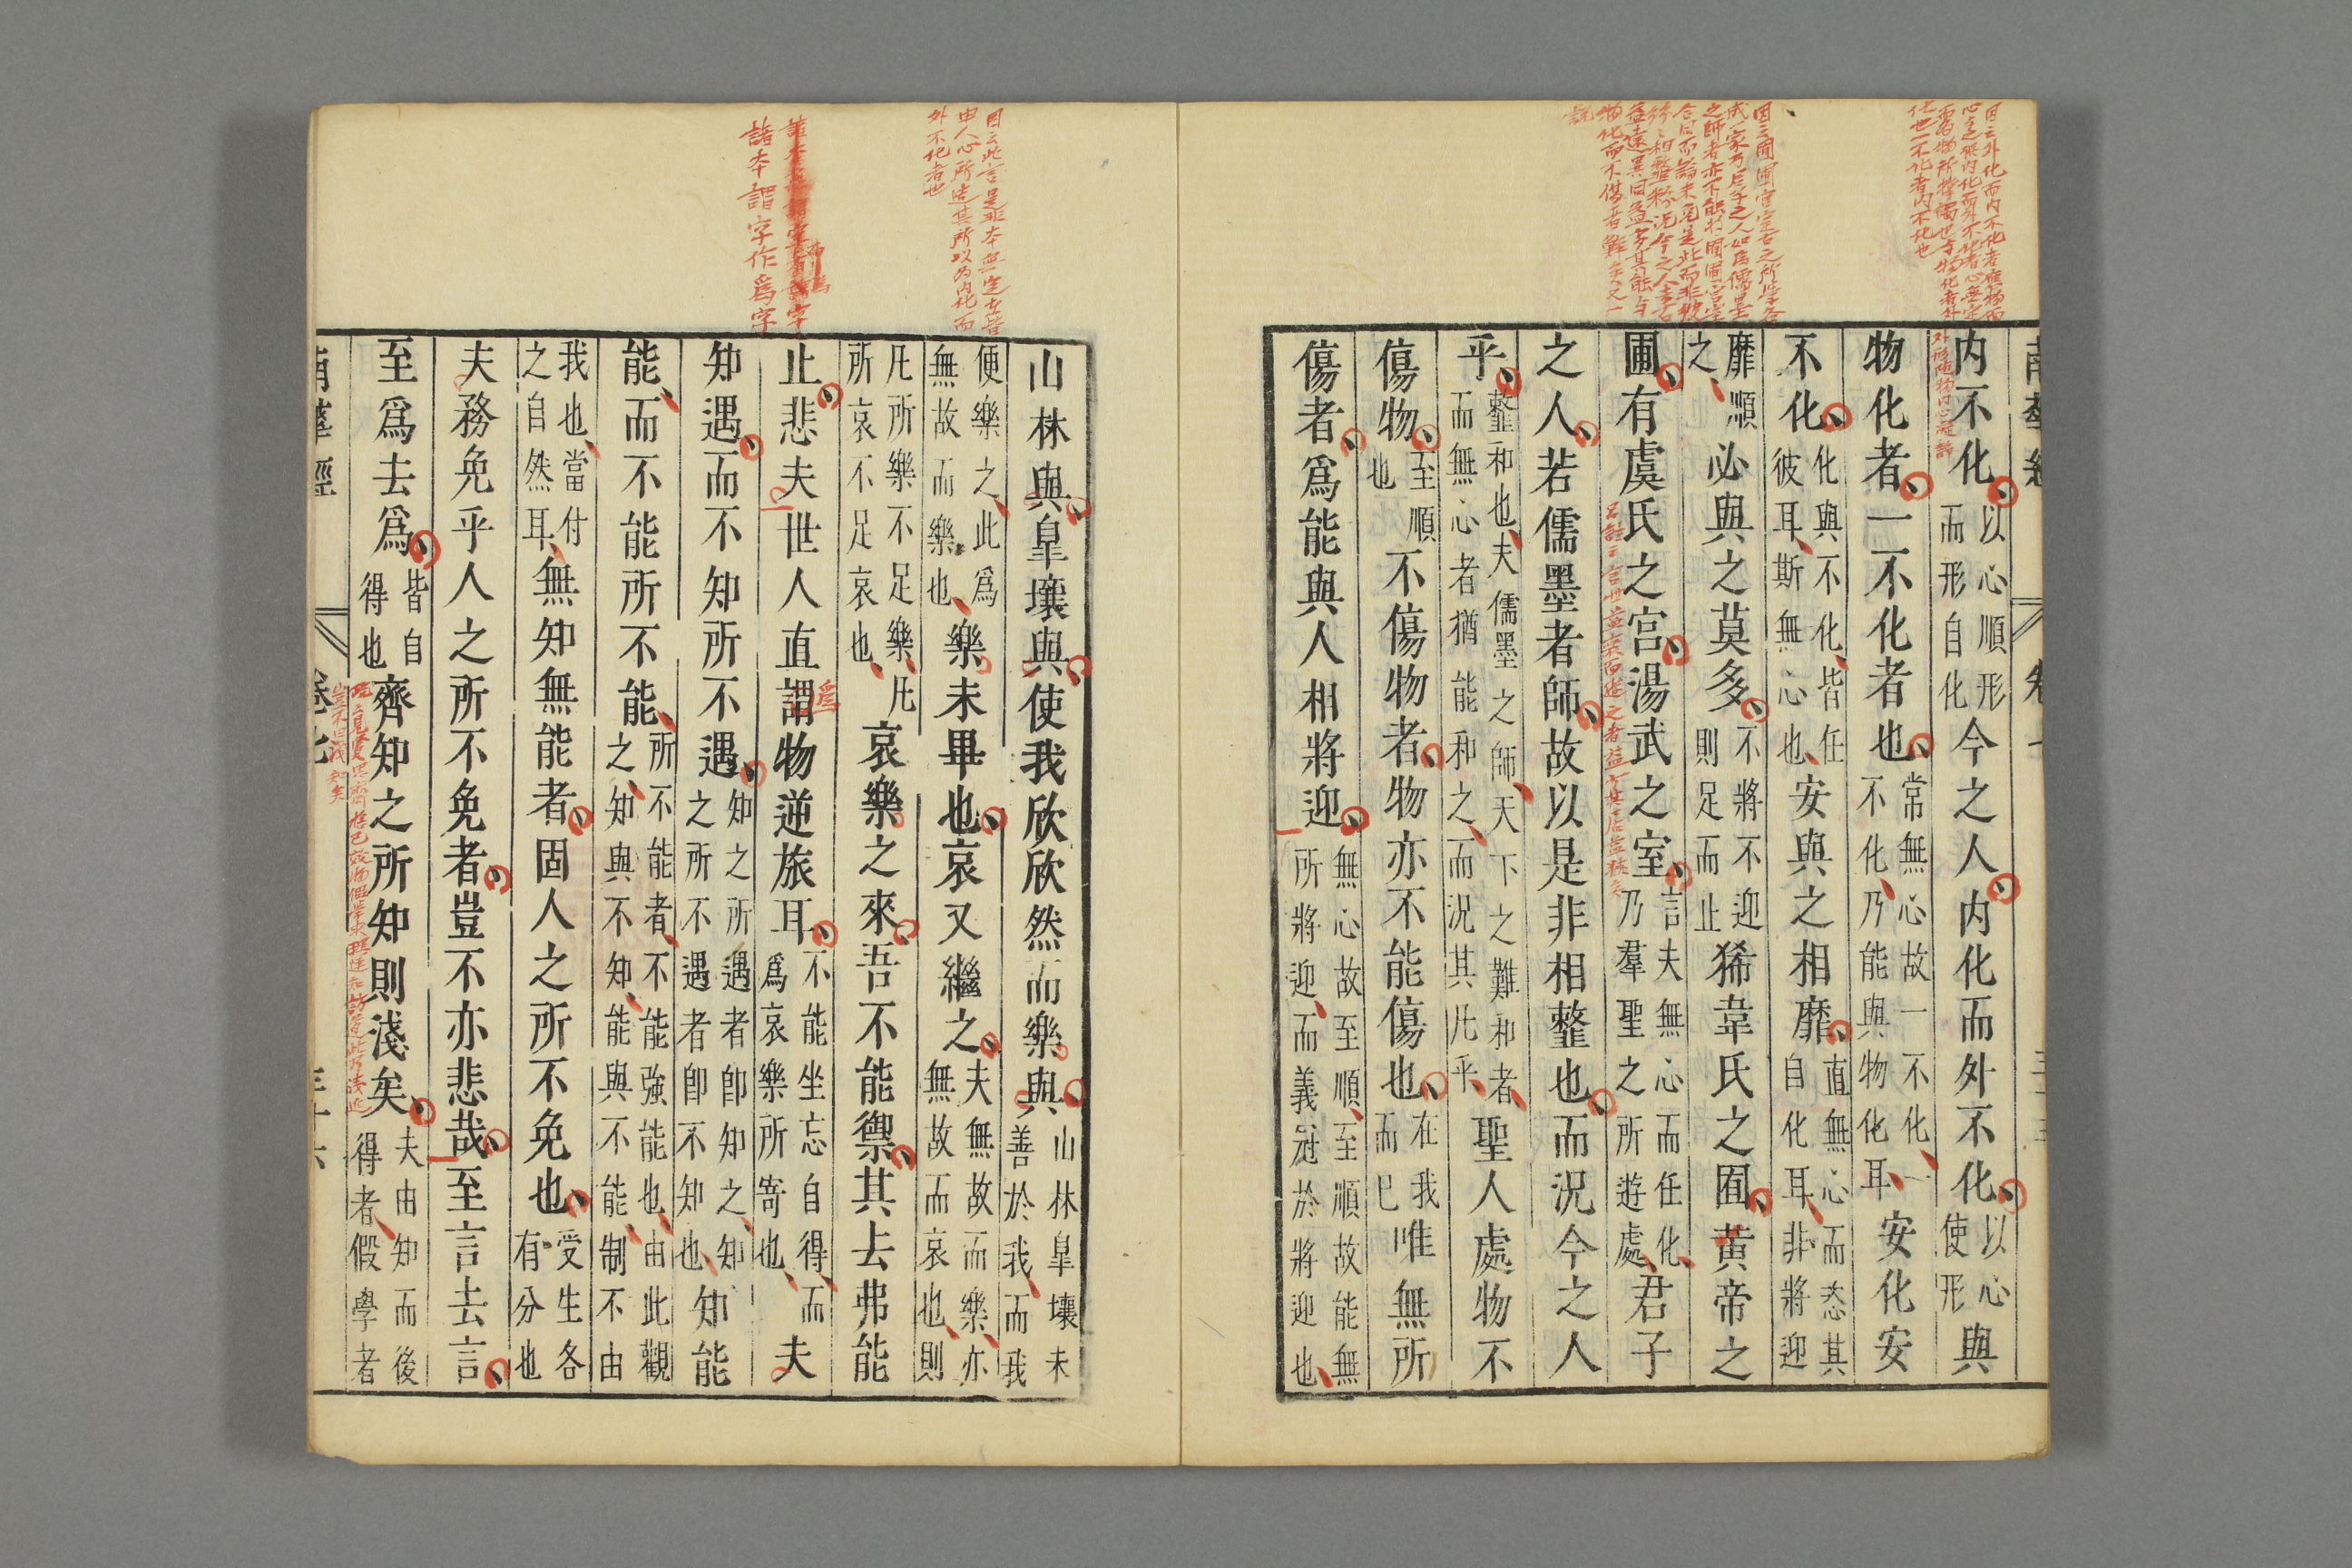 外形隨物內心凝靜
內不化以心順形而形自化今之人內化而外不化以心使形與
物化者一不化者也常無心故一不化一不化乃能與物化耳安化安
不化化與不化皆任彼耳斯無心也安與之相靡直無心而恣其自化耳非將迎
靡順之必與之莫多不將不迎則足而止狶韋氏之囿黃帝之
圃有虞氏之宮湯武之室言夫無心而任化乃羣聖之所遊處君子
之人若儒墨者師故以是非相𩐋也而況今之人
乎𩐋和也夫儒墨之師天下之難和者而無心者猶能和之而況其凡乎聖人處物不
傷物至順也不傷物者物亦不能傷也在我而已唯無所
傷者爲能與人相將迎無心故至順至順故能無所將迎而義冠於將迎也
諸本謂字作爲字
山林與皐壤與使我欣欣然而樂與山林皐壤未善於我而我
便樂之此爲無故而樂也樂未畢也哀又繼之夫無故而樂亦無故而哀也則
凡所樂不足樂凡所哀不足哀也哀樂之來吾不能禦其去弗能
止悲夫世人直謂物逆旅耳不能坐忘自得而爲哀樂所寄也夫
爲
知遇而不知所不遇知之所遇者卽知之知之所不遇者卽不知也知能
能而不能所不能所不能者不能強能也由此觀之知與不知能與不能制不由
我也當付之自然耳無知無能者固人之所不免也受生各有分也
夫務免乎人之所不免者豈不亦悲哉至言去言
至爲去爲皆自得也齊知之所知則淺矣夫由知而後得者假學者